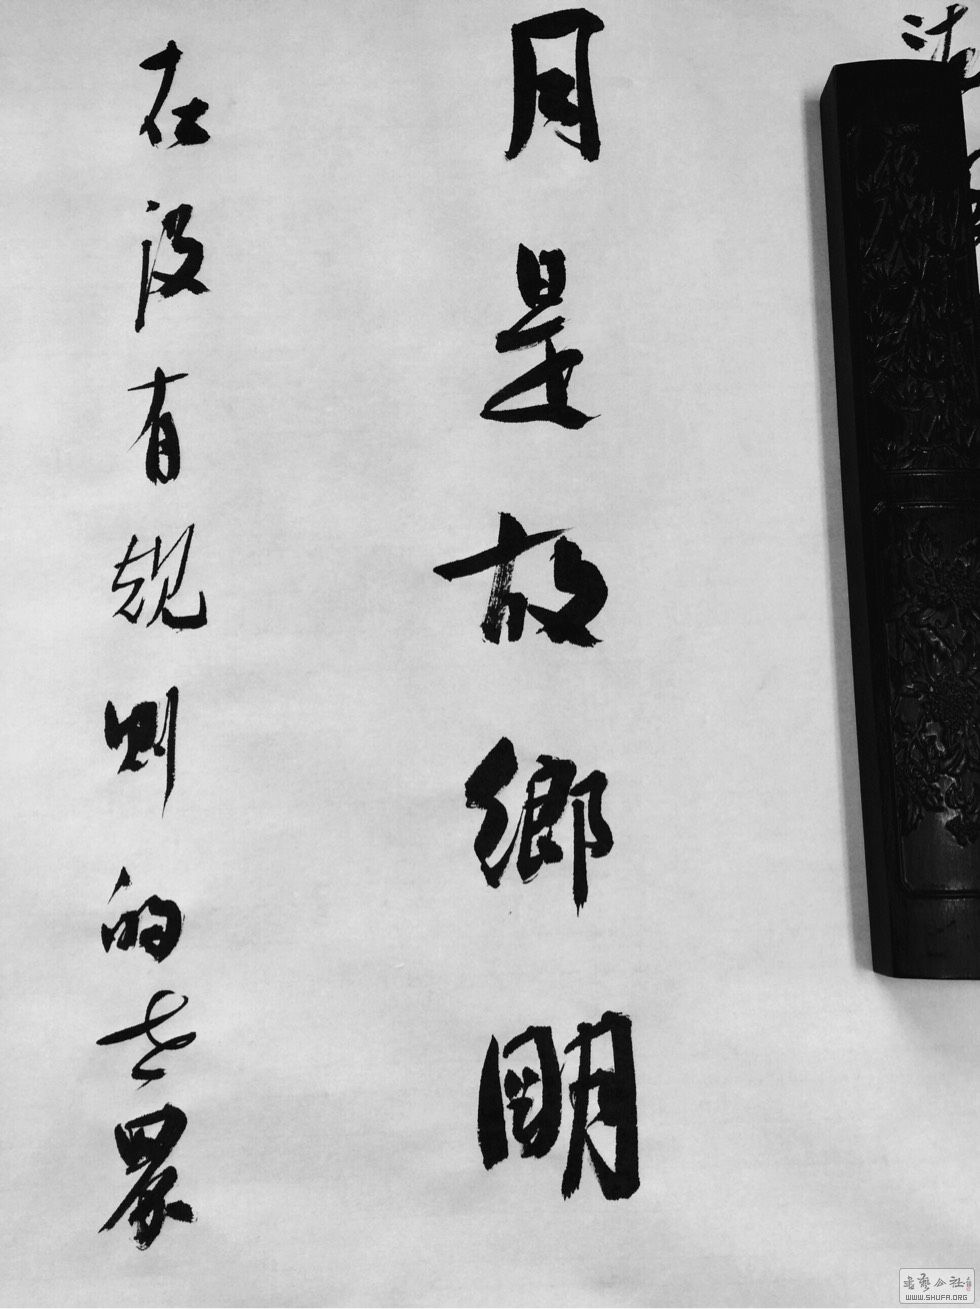 月是故鄉明
在没有规则的世界
書藝公社
WWW.SHUFA.ORG